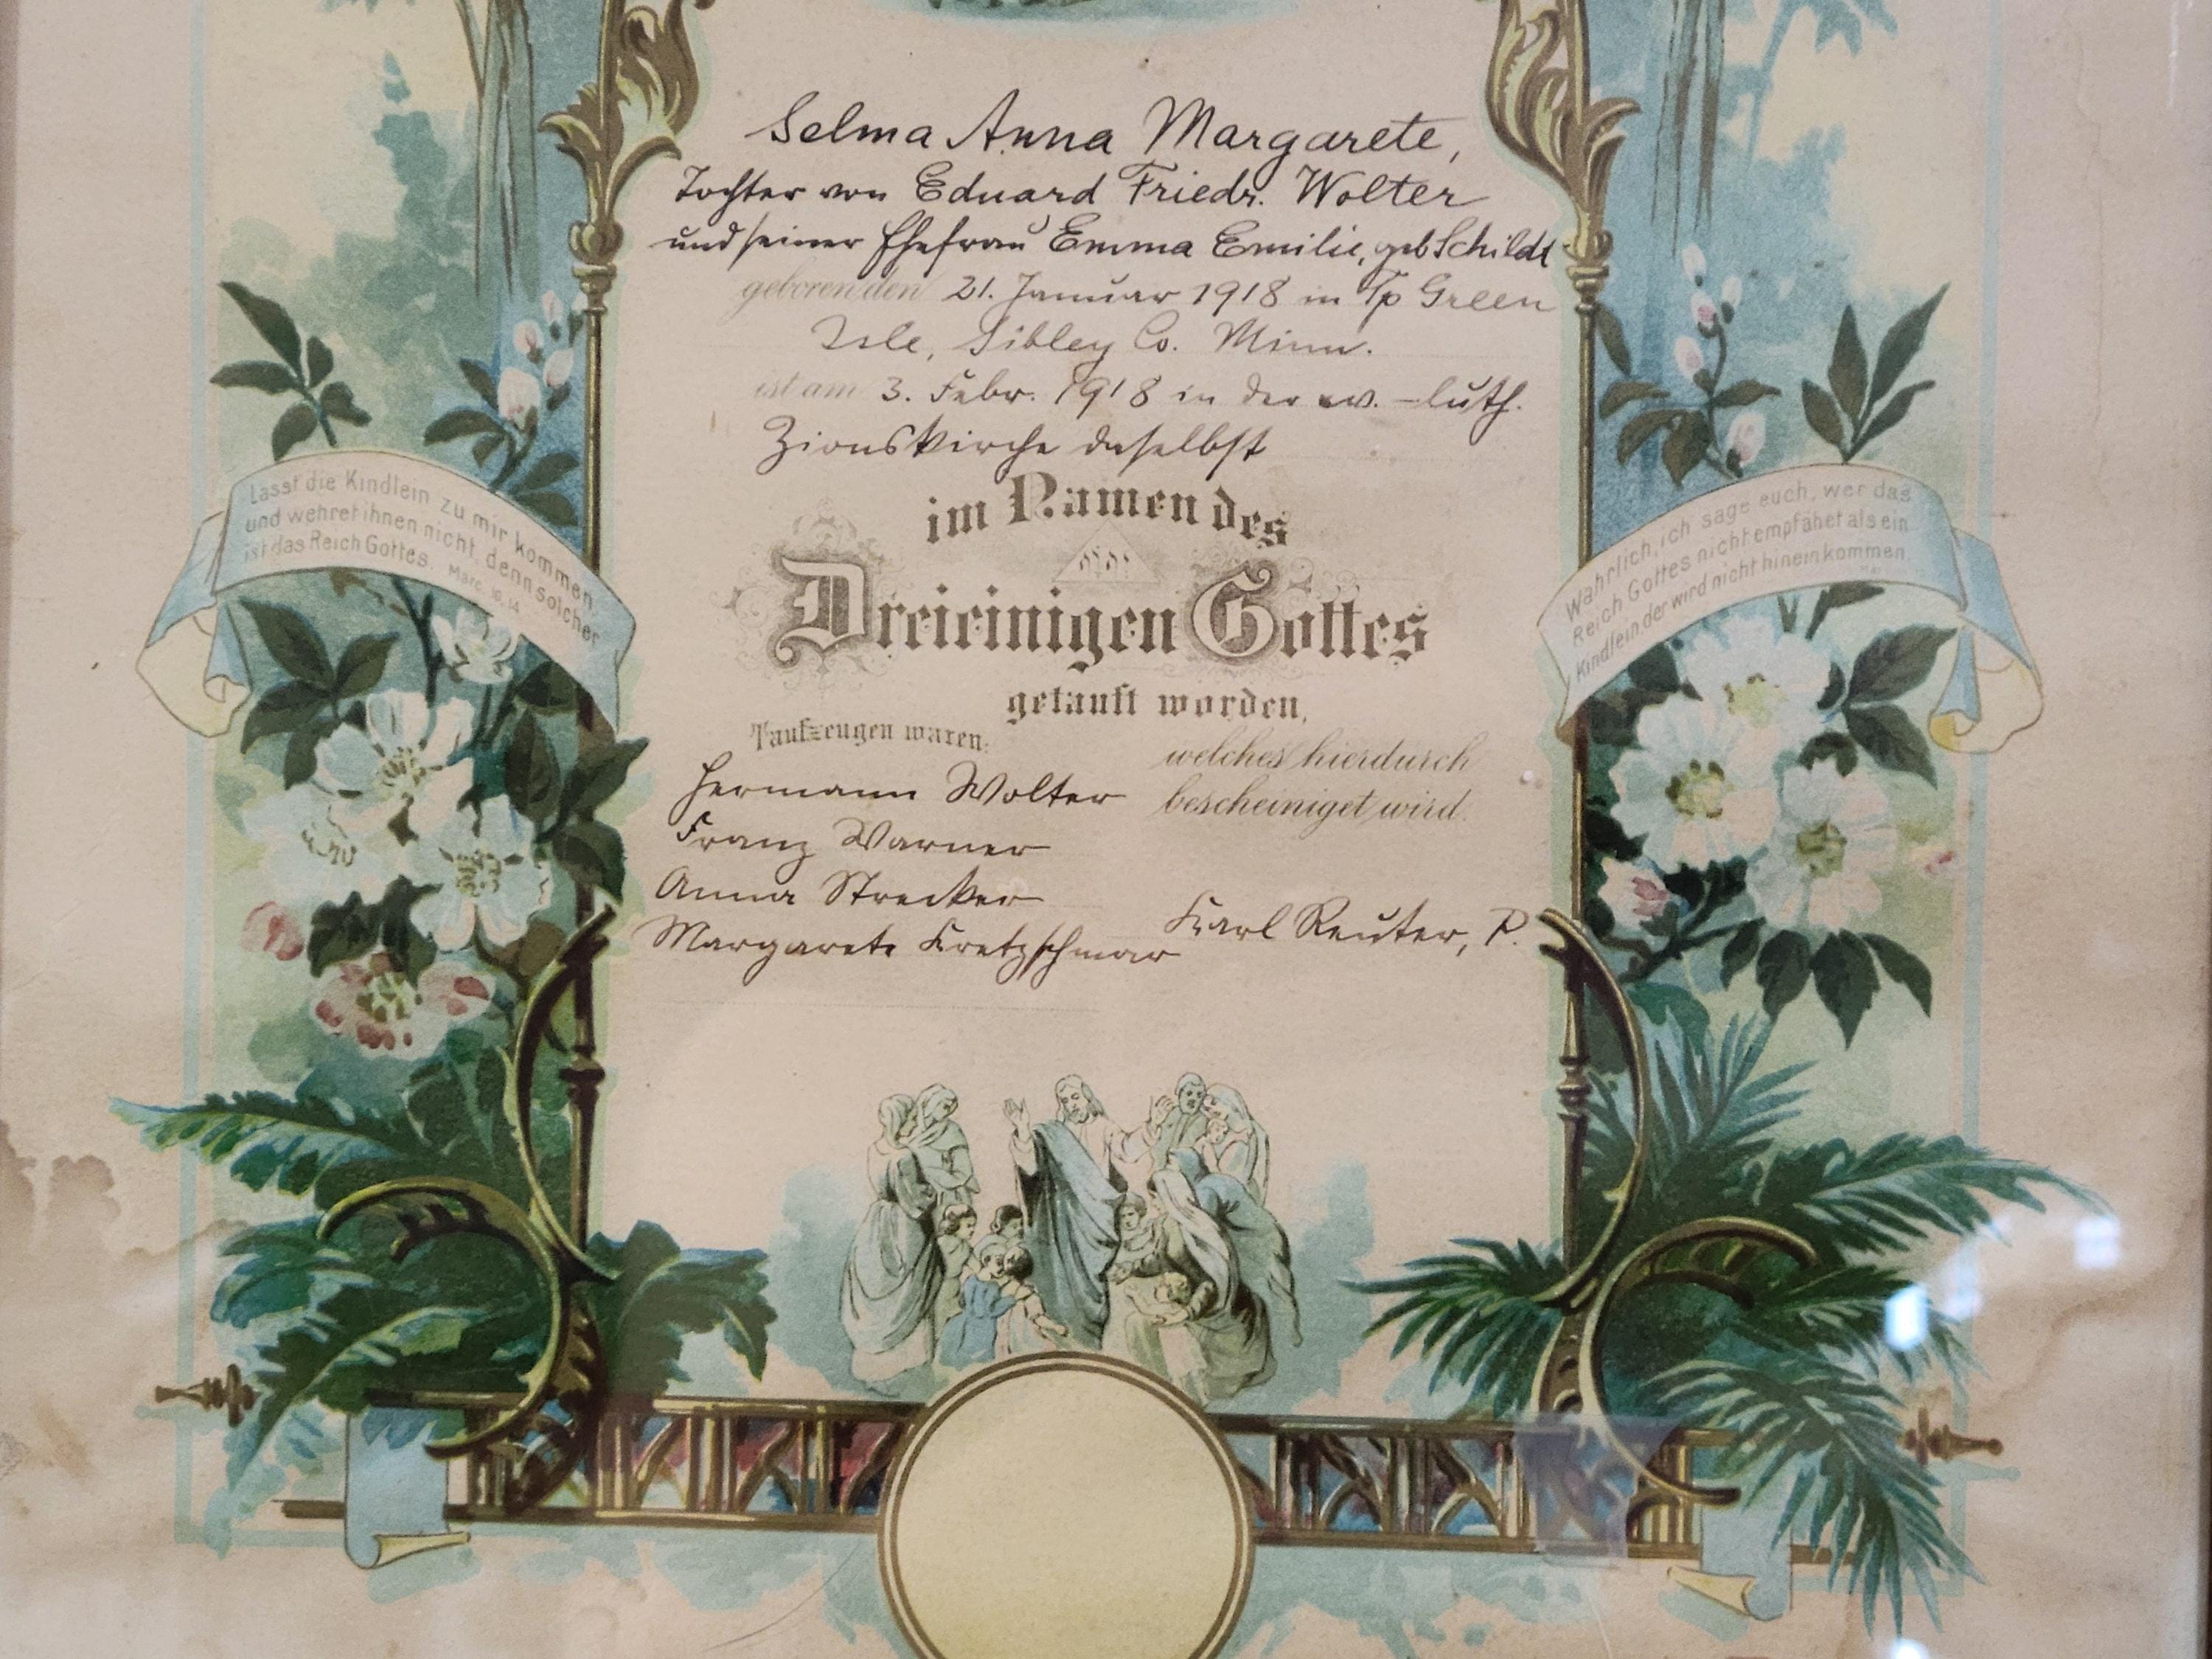 Selma Anna Margarete,
Tochter von Eduard Friedr. Wolter
und seiner Ehefrau Emma Emilie, geb Schildt
geboren den 21. Januar 1918 in Tp Green
Isle, Sibley Co. Minn.
ist am 3. Febr. 1918 in der ev.-luth.
Zionskirche daselbst
im Namen des
Dreieinigen Gottes
getauft worden,
Taufzeugen waren:
Hermann Wolter
Franz Warner
Anna Strecker
Margarete Kretzschmar
welches hierdurch
bescheiniget wird.
Karl Reuter, P.
Lasst die Kindlein zu mir kommen
und wehret ihnen nicht, denn solcher
ist das Reich Gottes. Marc. 10, 14
Wahrlich, ich sage euch, wer das
Reich Gottes nicht empfähet als ein
Kindlein, der wird nicht hineinkommen.